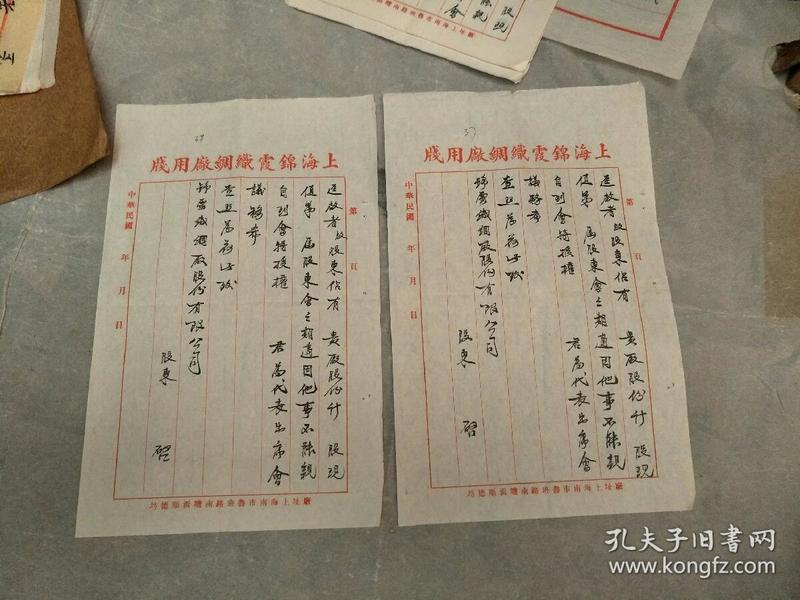 上海錦霞織綢廠用牋
第 頁
逕啟者敝股東佔有 貴廠股份計 股現
值第 屆股東會之期適因他事不能親
自到會特授權 君為代表出席會
議務希
查照為荷此致
錦霞織綢廠股份有限公司
股東 啓
中華民國 年 月 日
廠址上海南市魯班路南塘浜順德坊
上海錦霞織綢廠用牋
第 頁
逕啟者敝股東佔有 貴廠股份計 股現
值第 屆股東會之期適因他事不能親
自到會特授權 君為代表出席會
議務希
查照為荷此致
錦霞織綢廠股份有限公司
股東 啓
中華民國 年 月 日
廠址上海南市魯班路南塘浜順德坊
孔夫子旧書网
kongfz.com